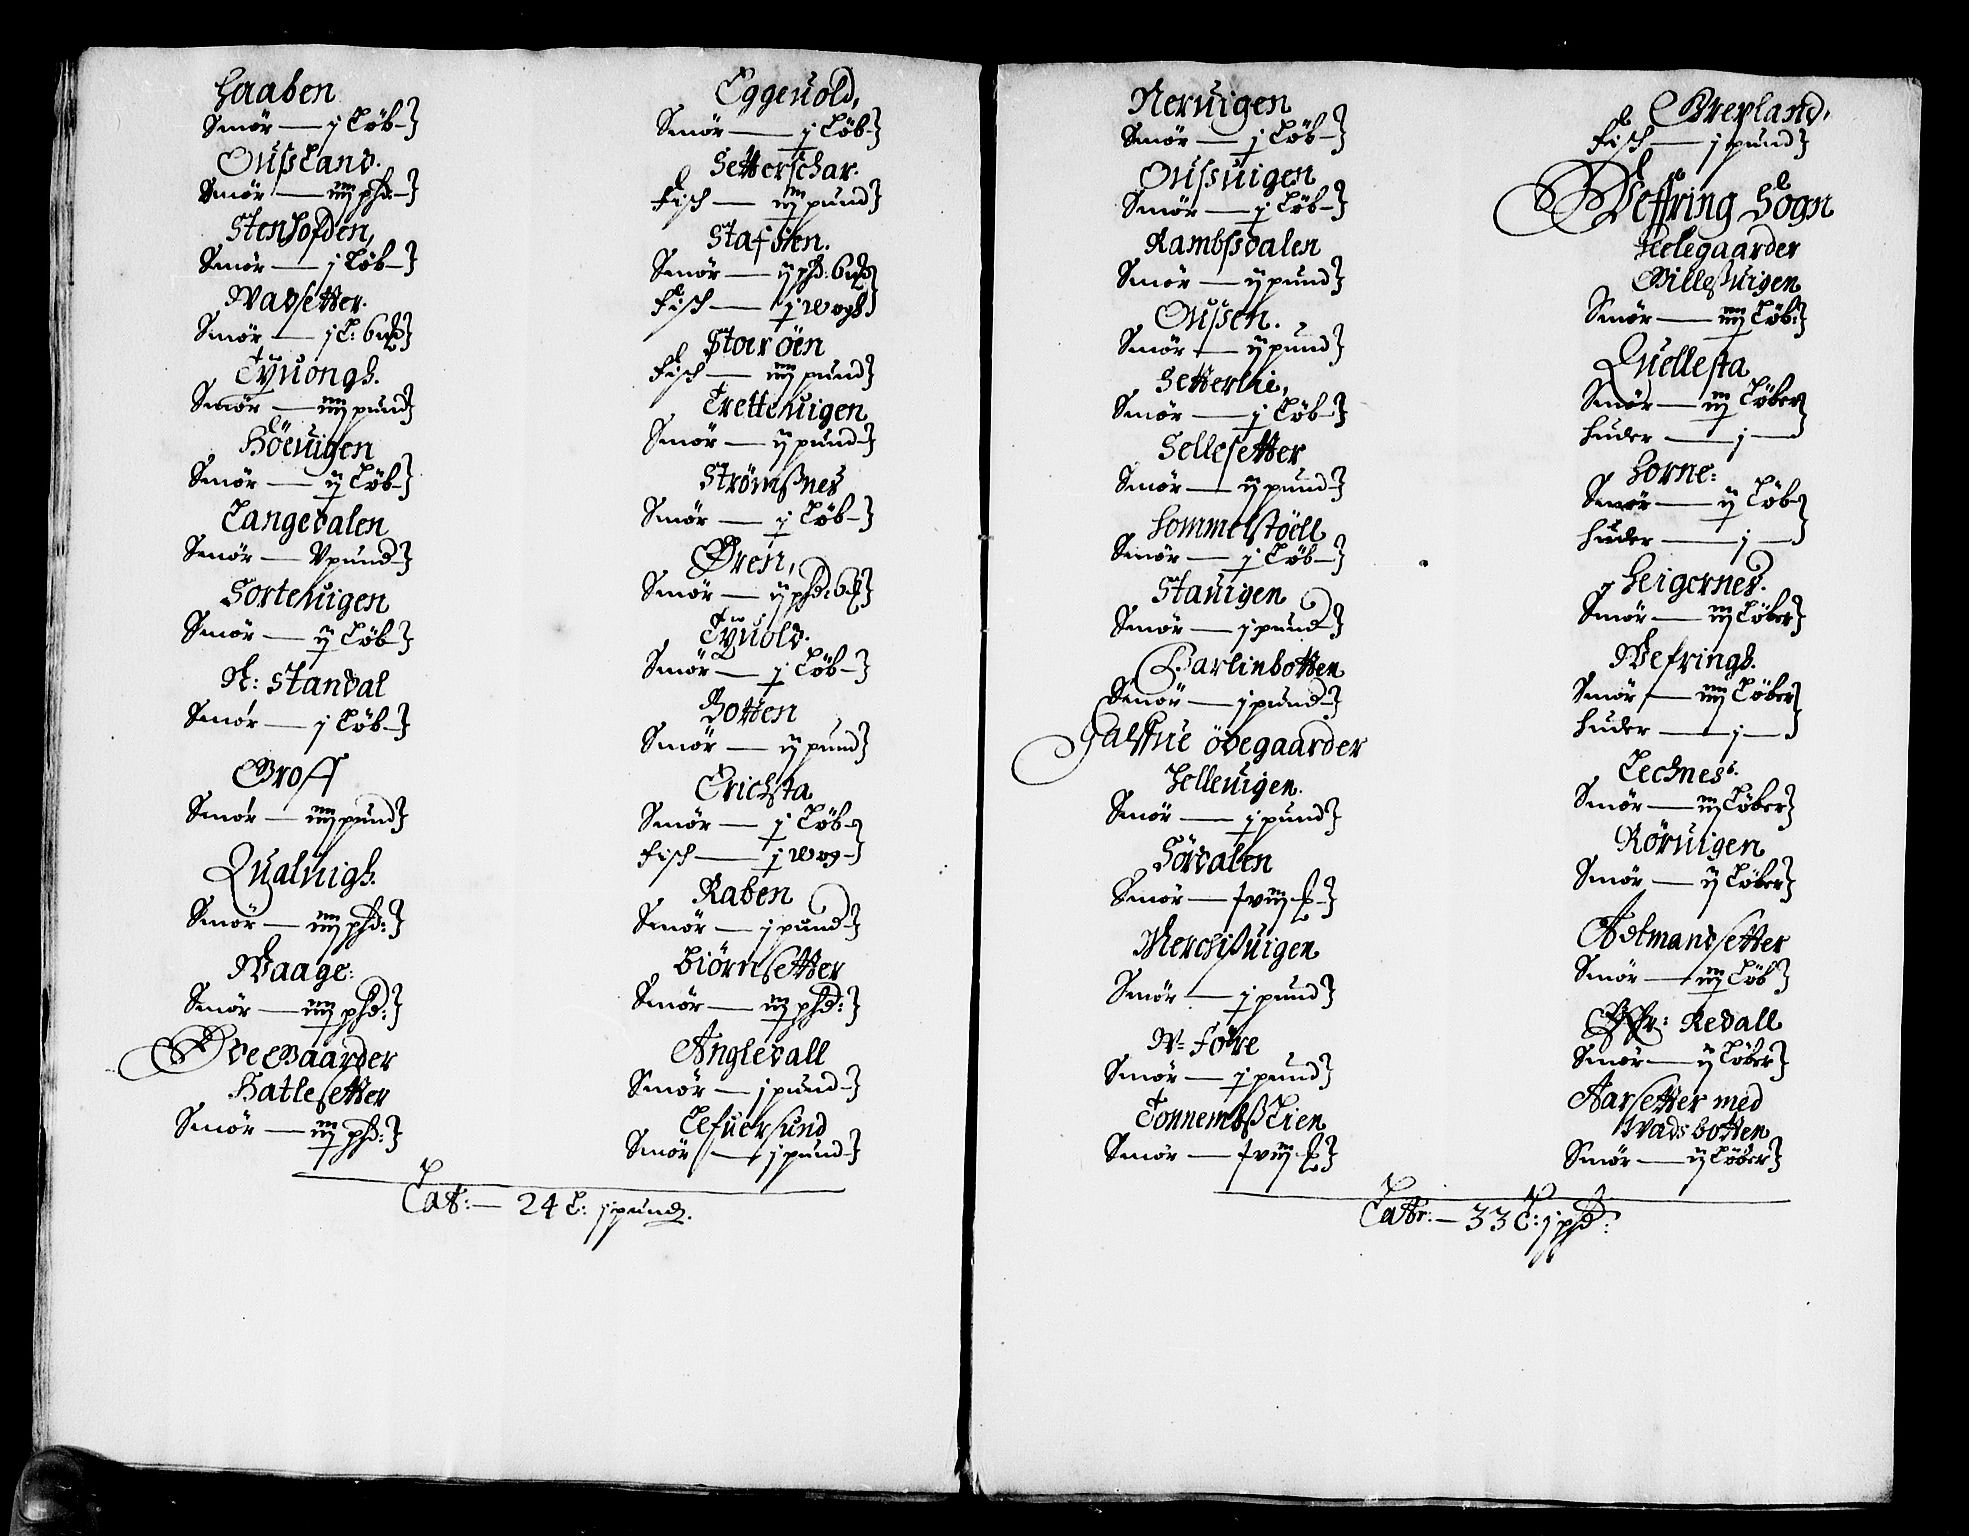 Haaben
Smør — j Løb
Oußland.
Smør — iiij phd:
Stenhofden,
Smør — j Løb
Wadsetter.
Smør — j L: 6 mk
Tyuongh.
Smør — iiij pund
Höeuigen
Smør — ij Løb
Langedalen
Smør — V pund
Sorteuigen
Smør — ij Løb
N: Standal
Smør — j Løb
Groff
Smør — iiij pund
Qualuigh.
Smør — iiij phd:
Waage:
Smør — iiij phd:
Ödegaarder
Hatlesetter
Smør — iij phd:
Eggeuold,
Smør — j Løb
Setterschar.
Fisch — iij pund
Stafsien.
Smør — ij phd: 6 mk
Fisch — j Wogh
Storöen
Fisch — iiij pund
Tretteuigen
Smør — ij pund
Strömßnes
Smør — j Løb
Øren,
Smør — ij phd: 6 mk
Tyuold.
Smør — j Løb
Botten
Smør — ij pund
Erichsta
Smør — j Løb
Fisch — j Wog
Raben
Smør — j pund
Biörnsetter
Smør — iij phd:
Angledall
Smør — j pund
Lefuersund
Smør — j pund
Lat: — 24 L: j pund.
Neruigen
Smør — j Løb
Oußuigen
Smør — j Løb
Rambßdalen
Smør — ij pund
Oußen.
Smør — ij pund
Setterlie,
Smør — j Løb
Sellesetter
Smør — ij pund
Hommelstöell
Smør — j Løb
Stauigen
Smør — j pund
Barlinbotten
Smør — j pund
Halffue ödegaarder
Helleuigen.
Smør — j pund
Sördalen
Smør —
Merchißuigen
Smør — j pund
W: Före
Smør — j pund
Tonnembß Lien
Smør —
Breyland,
Fisch — j pund
Veffring Sogn
Helegaarder
Gilleßuigen
Smør — iiij Løb:
Quellesta
Smør — iij Løber
Huder — j —
Horne:
Smør — ij Løb
Huder — j —
Heigernes.
Smør — iij Løber
Wefringh.
Smør — iiij Løber
Huder — j —
Lechness.
Smør — iij Løber
Röruigen
Smør — ij Løber
Admandsetter
Smør — iij Løb
Redall
Smør — ij Løber
Aarsetter med
Wadsbotten
Smør — ij Løber
Latr: — 33 L: j phd: